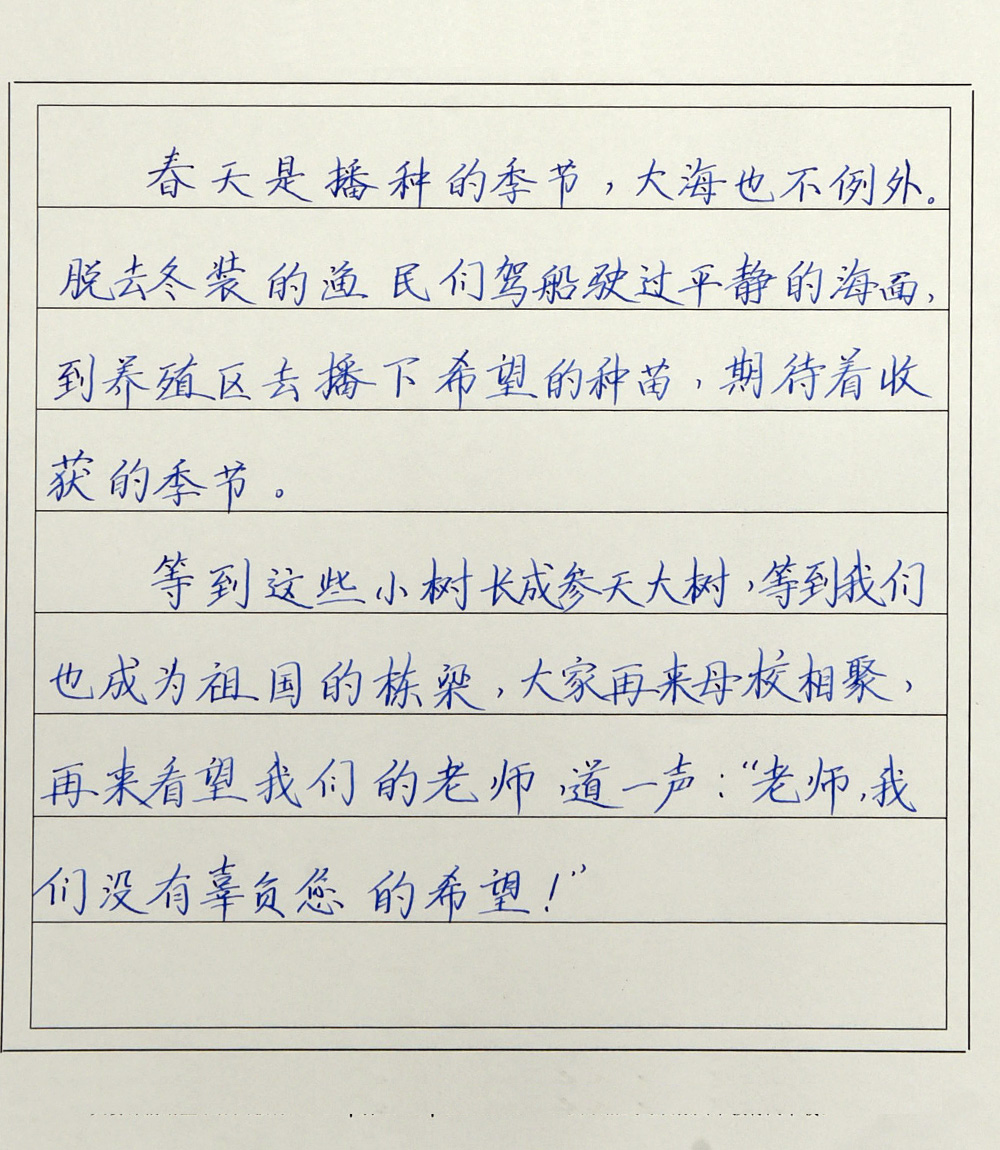 春天是播种的季节，大海也不例外。
脱去冬装的渔民们驾船驶过平静的海面，
到养殖区去播下希望的种苗，期待着收
获的季节。
等到这些小树长成参天大树，等到我们
也成为祖国的栋梁，大家再来母校相聚，
再来看望我们的老师，道一声：“老师，我
们没有辜负您的希望！”